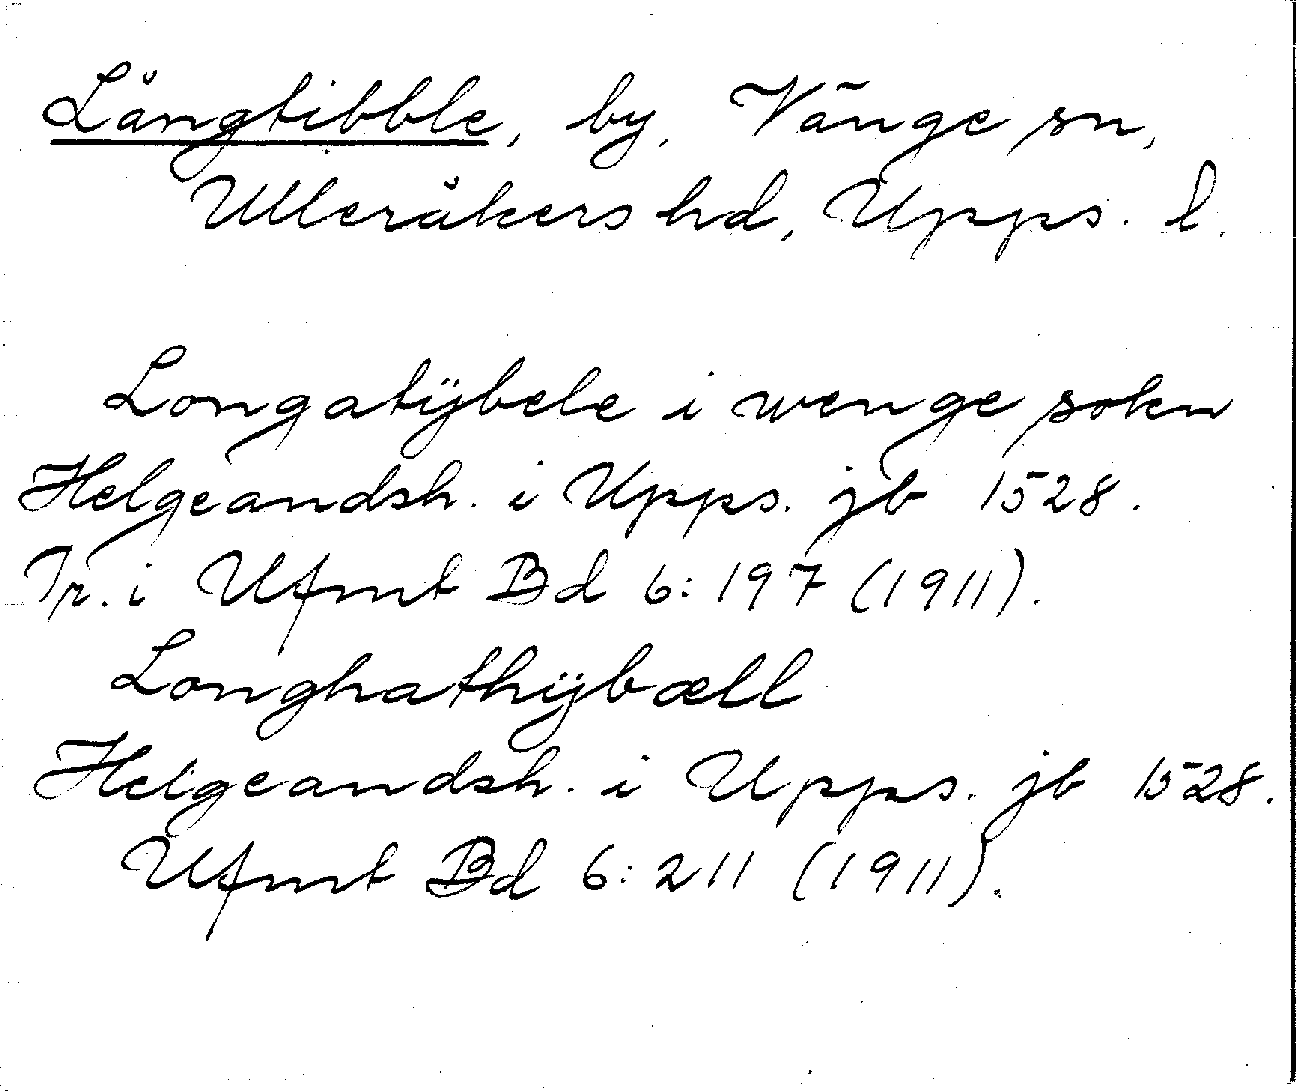 Långtibble, by, Vänge sn,
Ulleråkers hd, Upps. l.
Longatÿbele i wenge sokn
Helgeandsh. i Upps. jb 1528.
Tr. i Ufmt Bd 6:197 (1911).
Longhathÿbæll
Helgeandsh. i Upps. jb 1528.
Ufmt Bd 6:211 (1911).